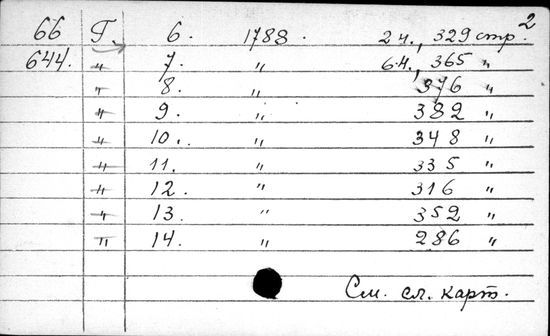 2
66 Г. 6. 1788. 2 ч., 329 стр.
644. " 7. " 6 ч., 365 "
" 8. " 376 "
" 9. " 382 "
" 10. " 348 "
" 11. " 335 "
" 12. " 316 "
" 13. " 352 "
" 14. " 286 "
См. сл. карт.